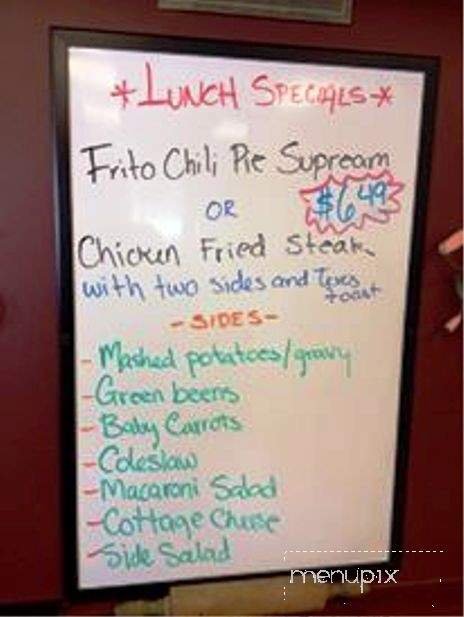 *LUNCH SPECIALS*
Frito Chili Pie Supream
OR
$6.49
Chicken Fried Steak
with two sides and Texas
toast
-SIDES-
- Mashed potatoes/gravy
- Green beens
- Baby Carrots
- Coleslaw
- Macaroni Salad
- Cottage Cheese
- Side Salad
menupix